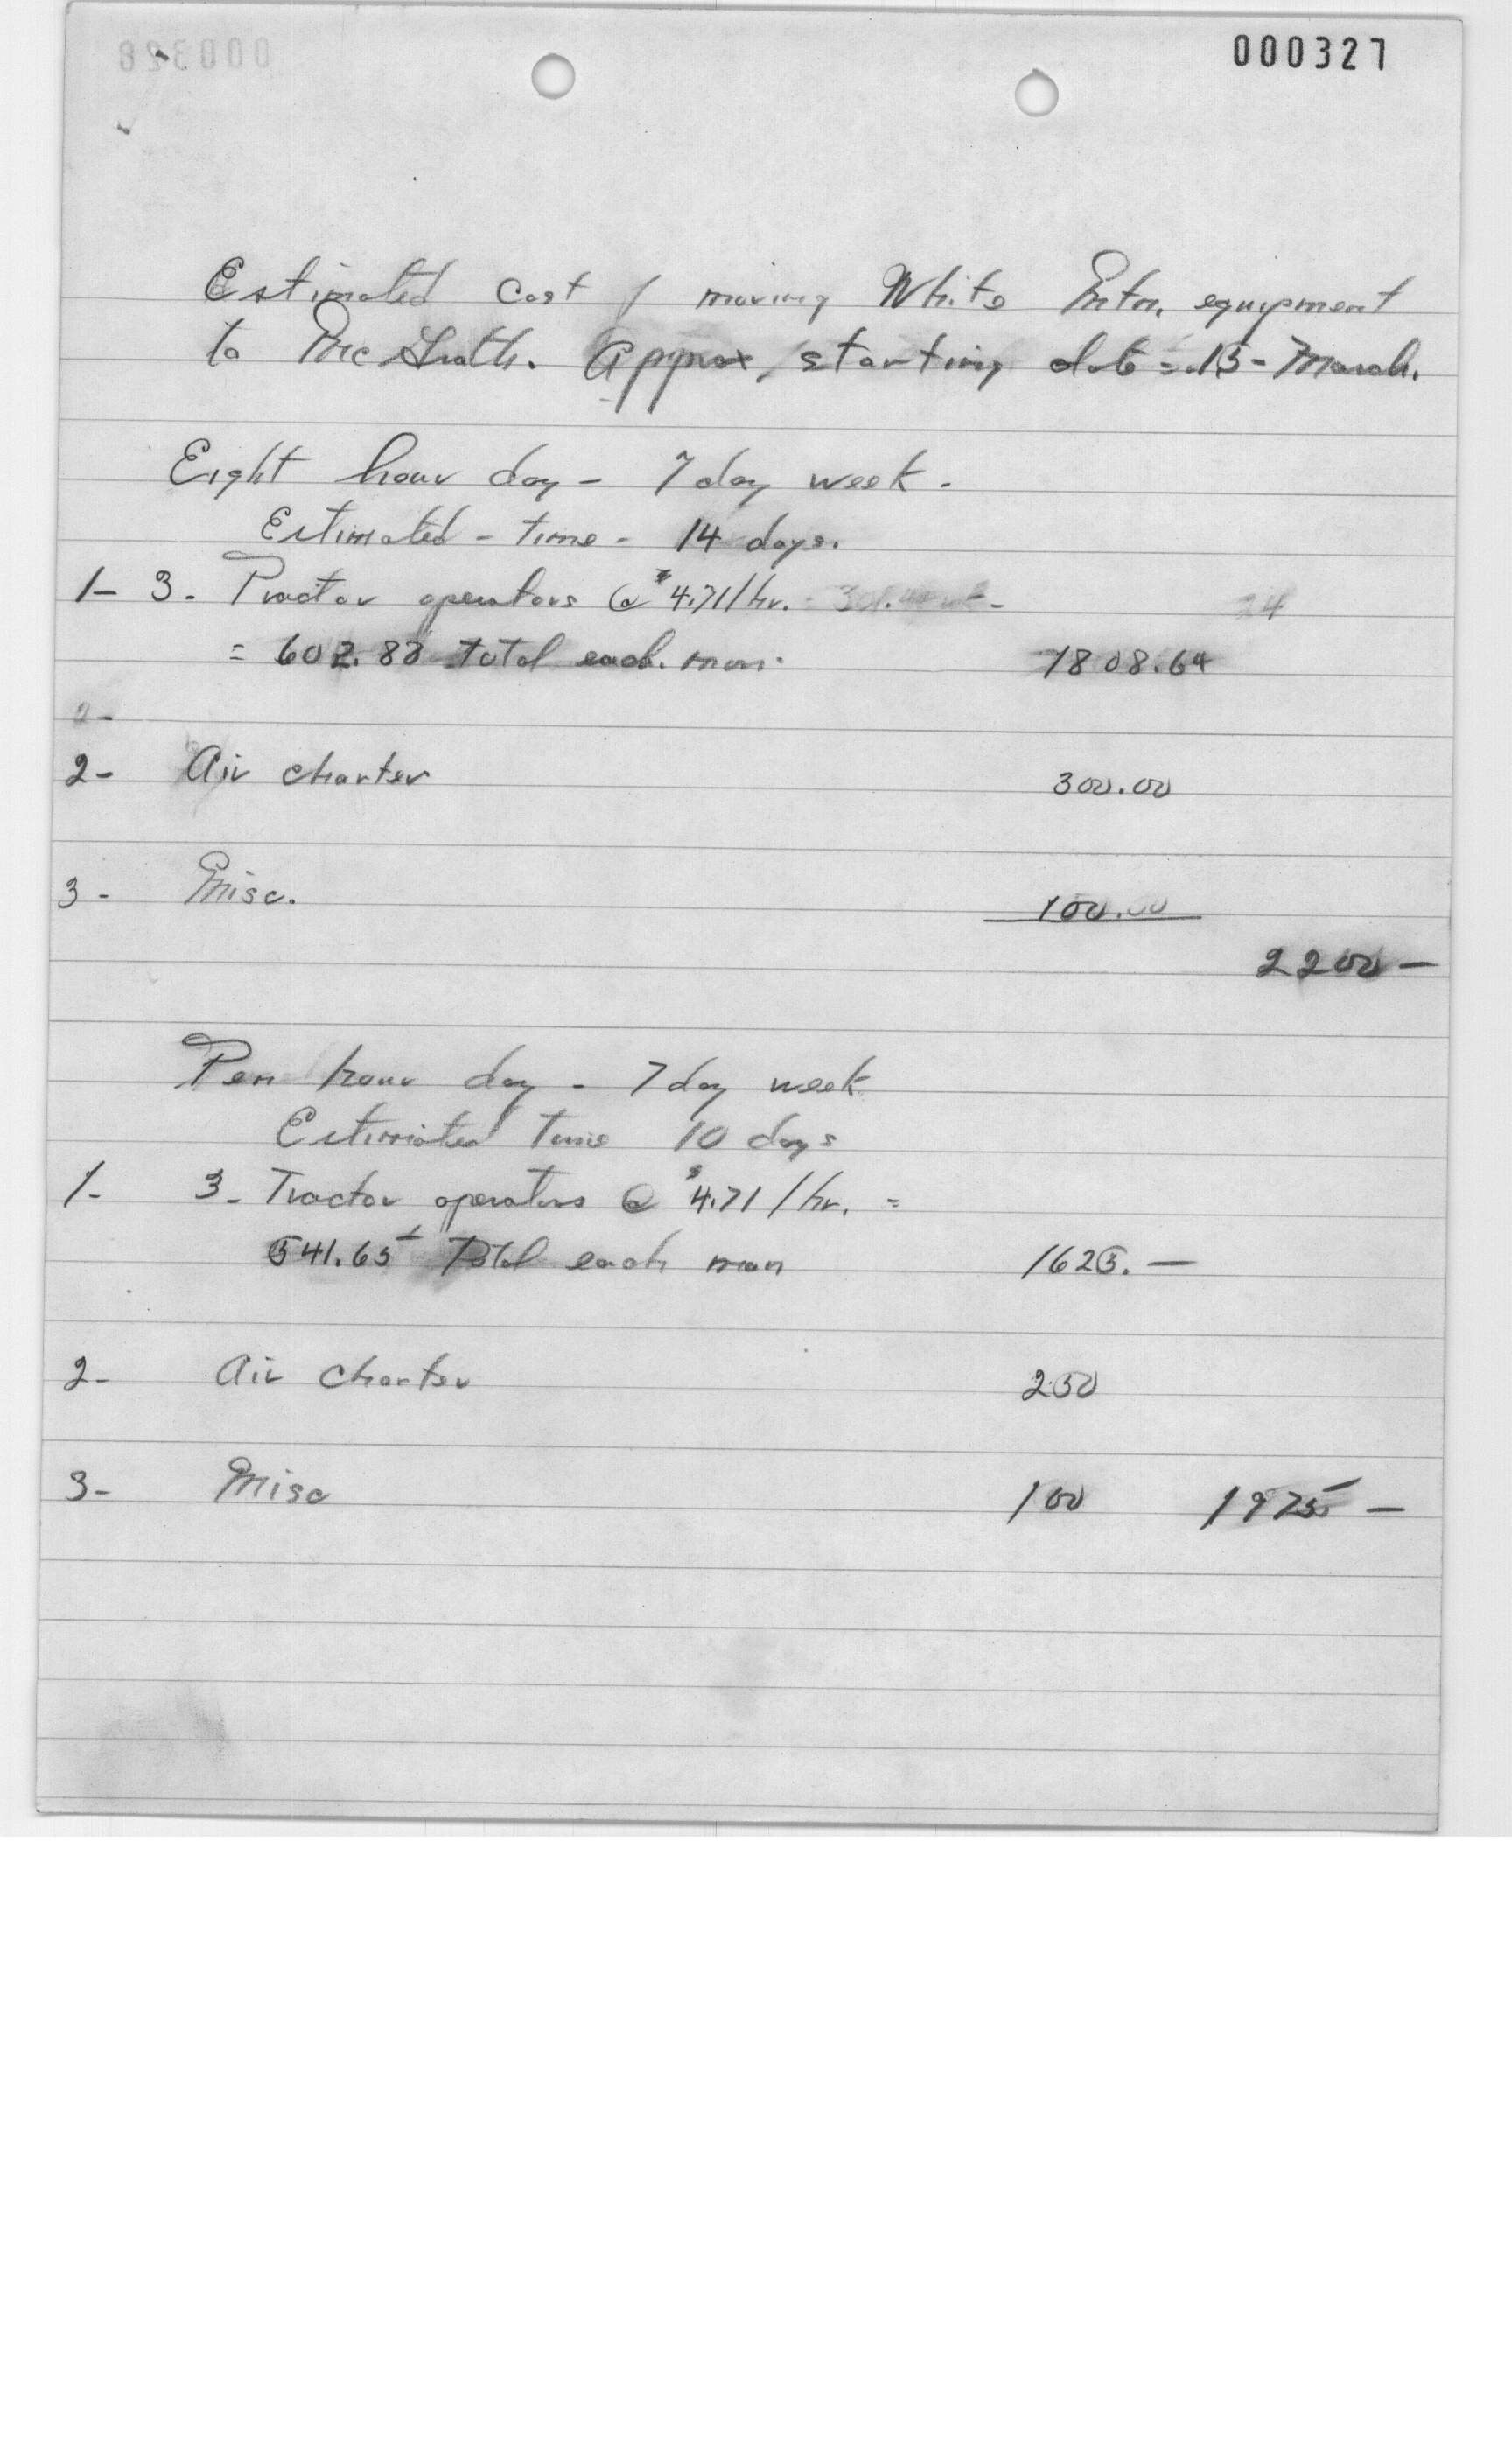 000327
Estimated Cost / moving White Mtn. equipment
to McGrath. Approx, starting date = 15 - March.
Eight hour day - 7 day week.
Estimated - time - 14 days.
1- 3. Tractor operators @ $4.71/hr. -
= 602.88 total each man. 1808.64
2-
2- Air charter 300.00
3- Misc. 100.00
2200-
Ten hour day - 7 day week
Estimated Time 10 days
1- 3- Tractor operators @ $4.71/hr. =
541.65 Total each man 1625.-
2- Air charter 250
3- Misc 100 1975-